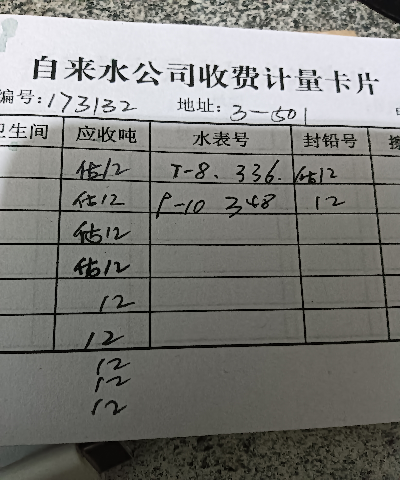 自来水公司收费计量卡片
编号:173132 地址:3-501
卫生间 应收吨 水表号 封铅号
估12 T-8. 336. 估12
估12 P-10 348 12
估12
估12
12
12
12
12
12